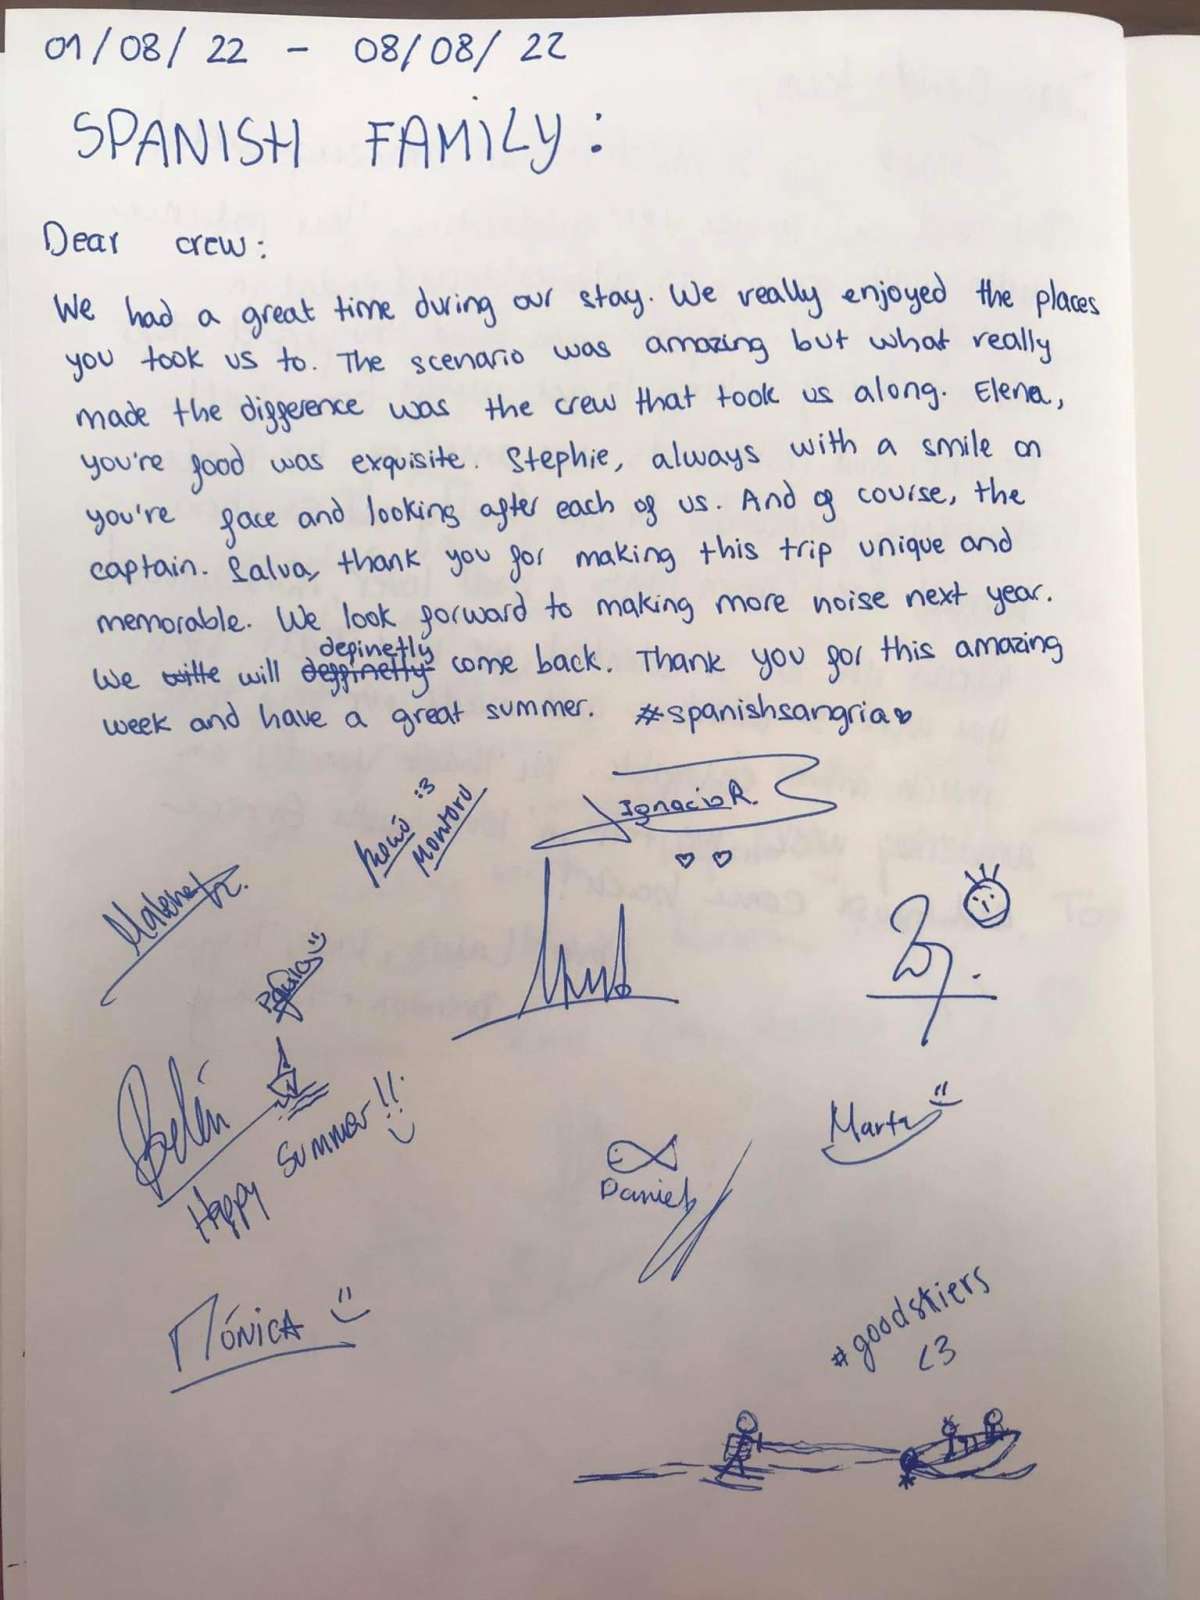 01/08/22 - 08/08/22
SPANISH FAMILY:
Dear crew:
We had a great time during our stay. We really enjoyed the places
you took us to. The scenario was amazing but what really
made the difference was the crew that took us along. Elena,
you're food was exquisite. Stephie, always with a smile on
you're face and looking after each of us. And of course, the
captain. Salva, thank you for making this trip unique and
memorable. We look forward to making more noise next year.
We will definetly come back. Thank you for this amazing
week and have a great summer. #spanishsangria
:3
Montoro
Ignacio R.
Paula
Belén
Happy Summer!!
Marta
Daniel
MÓNICA
#goodskiers
<3